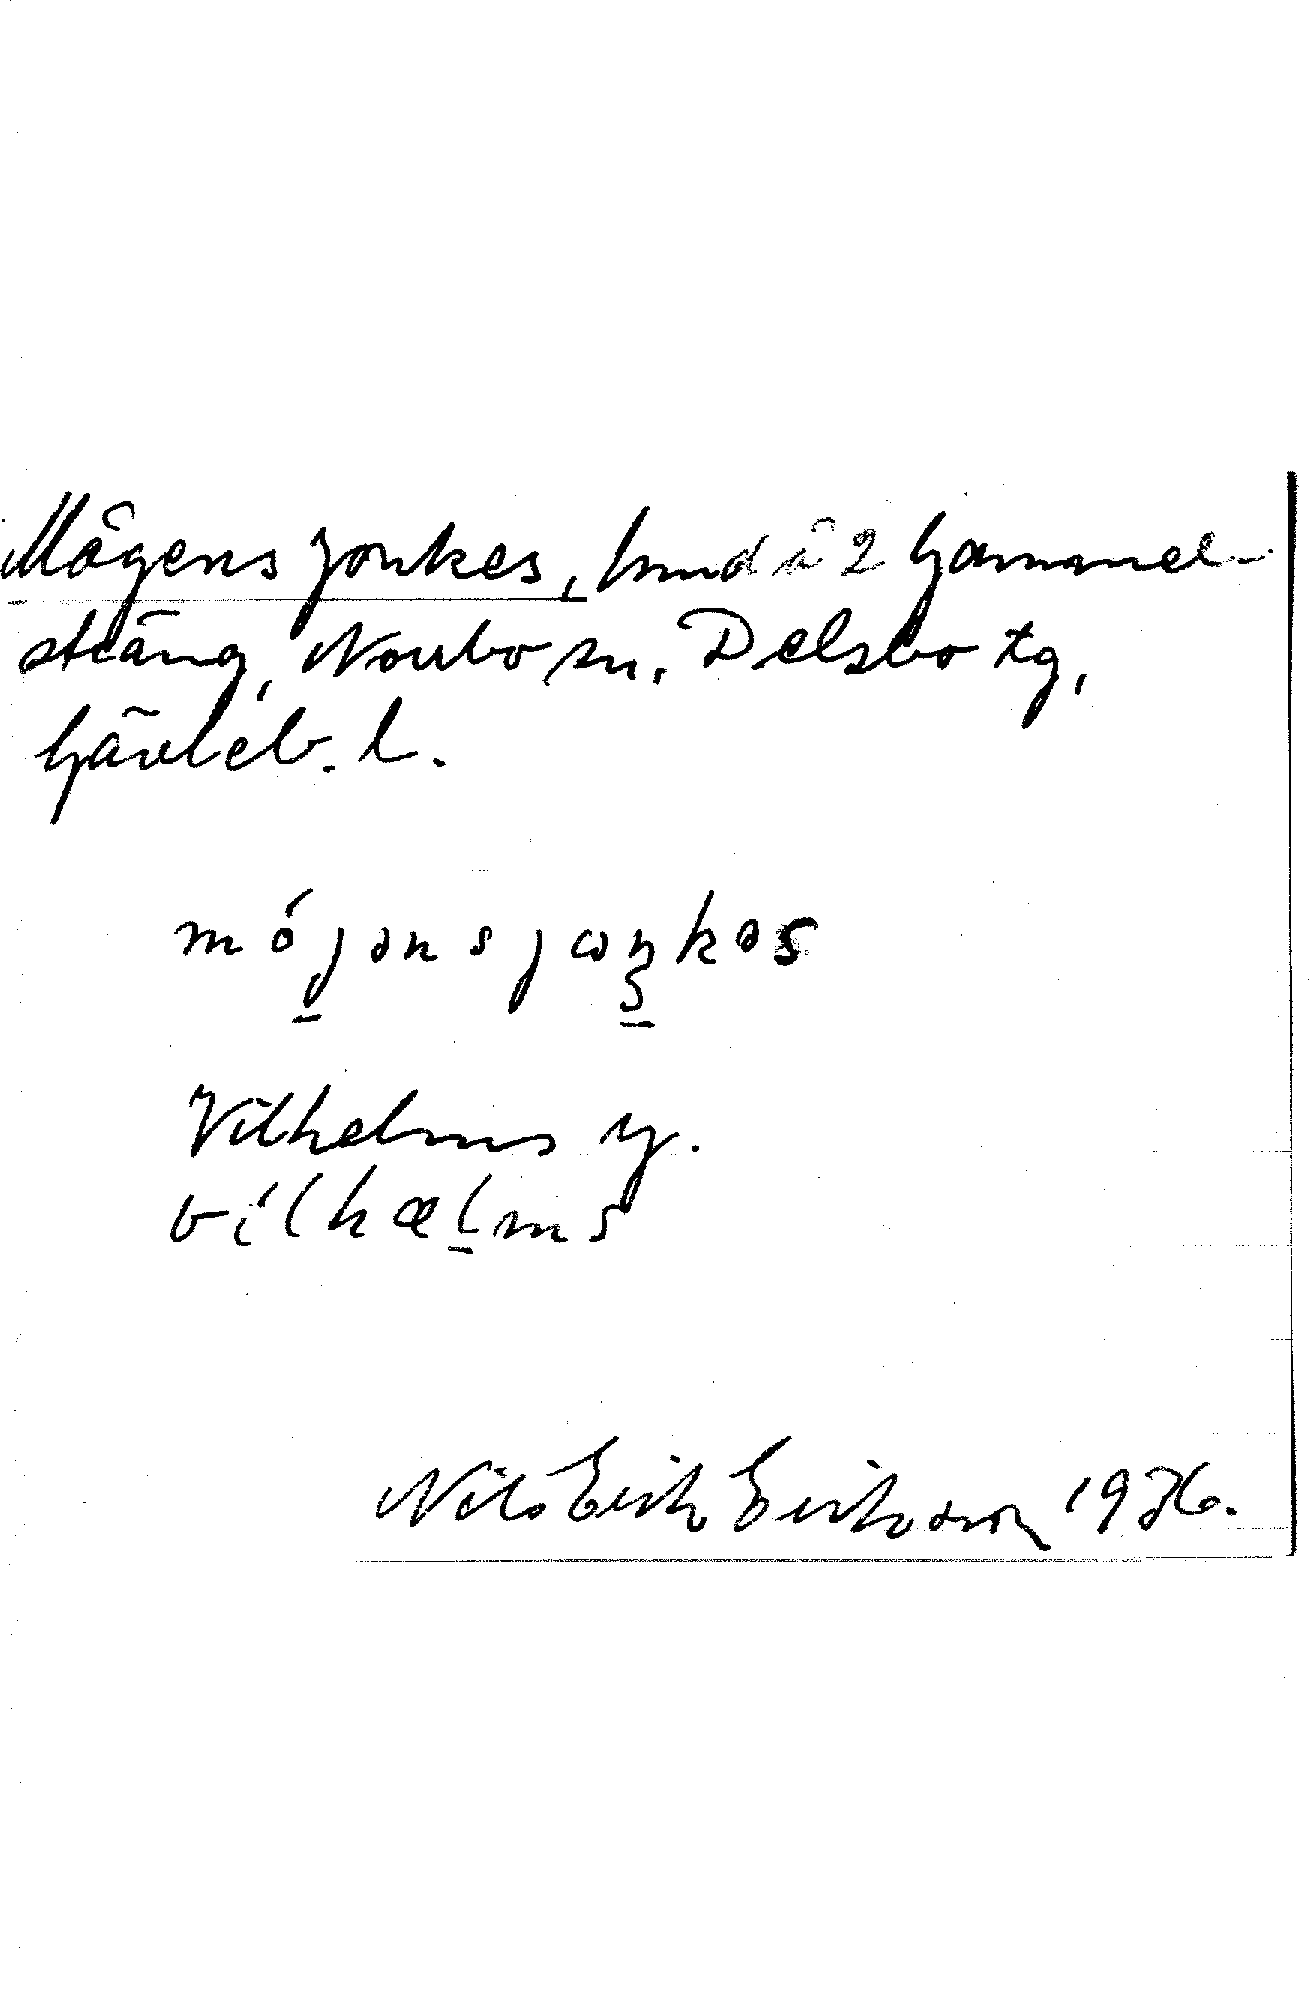 Mågens jonkes, hmd å 2 Gammel-
sträng, Norrbo sn. Delsbo tg,
Gävleb. l.
mójənsjωŋkəs
Vilhelms y.
vílhælms
Nils Erik Eriksson 1936.